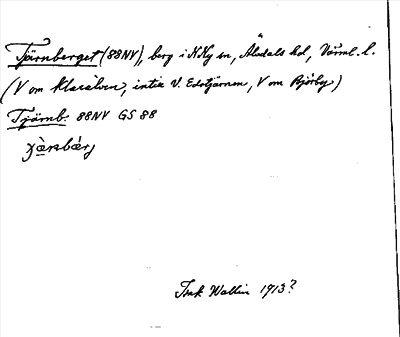 Tjärnberget (88NV), berg i N Ny sn, Älvdals hd, Värml. l.
(V om Klarälven, intill V. Edstjärnen, V om Björby)
Tjärnb. 88NV GS 88
Ink Wallin 1913?